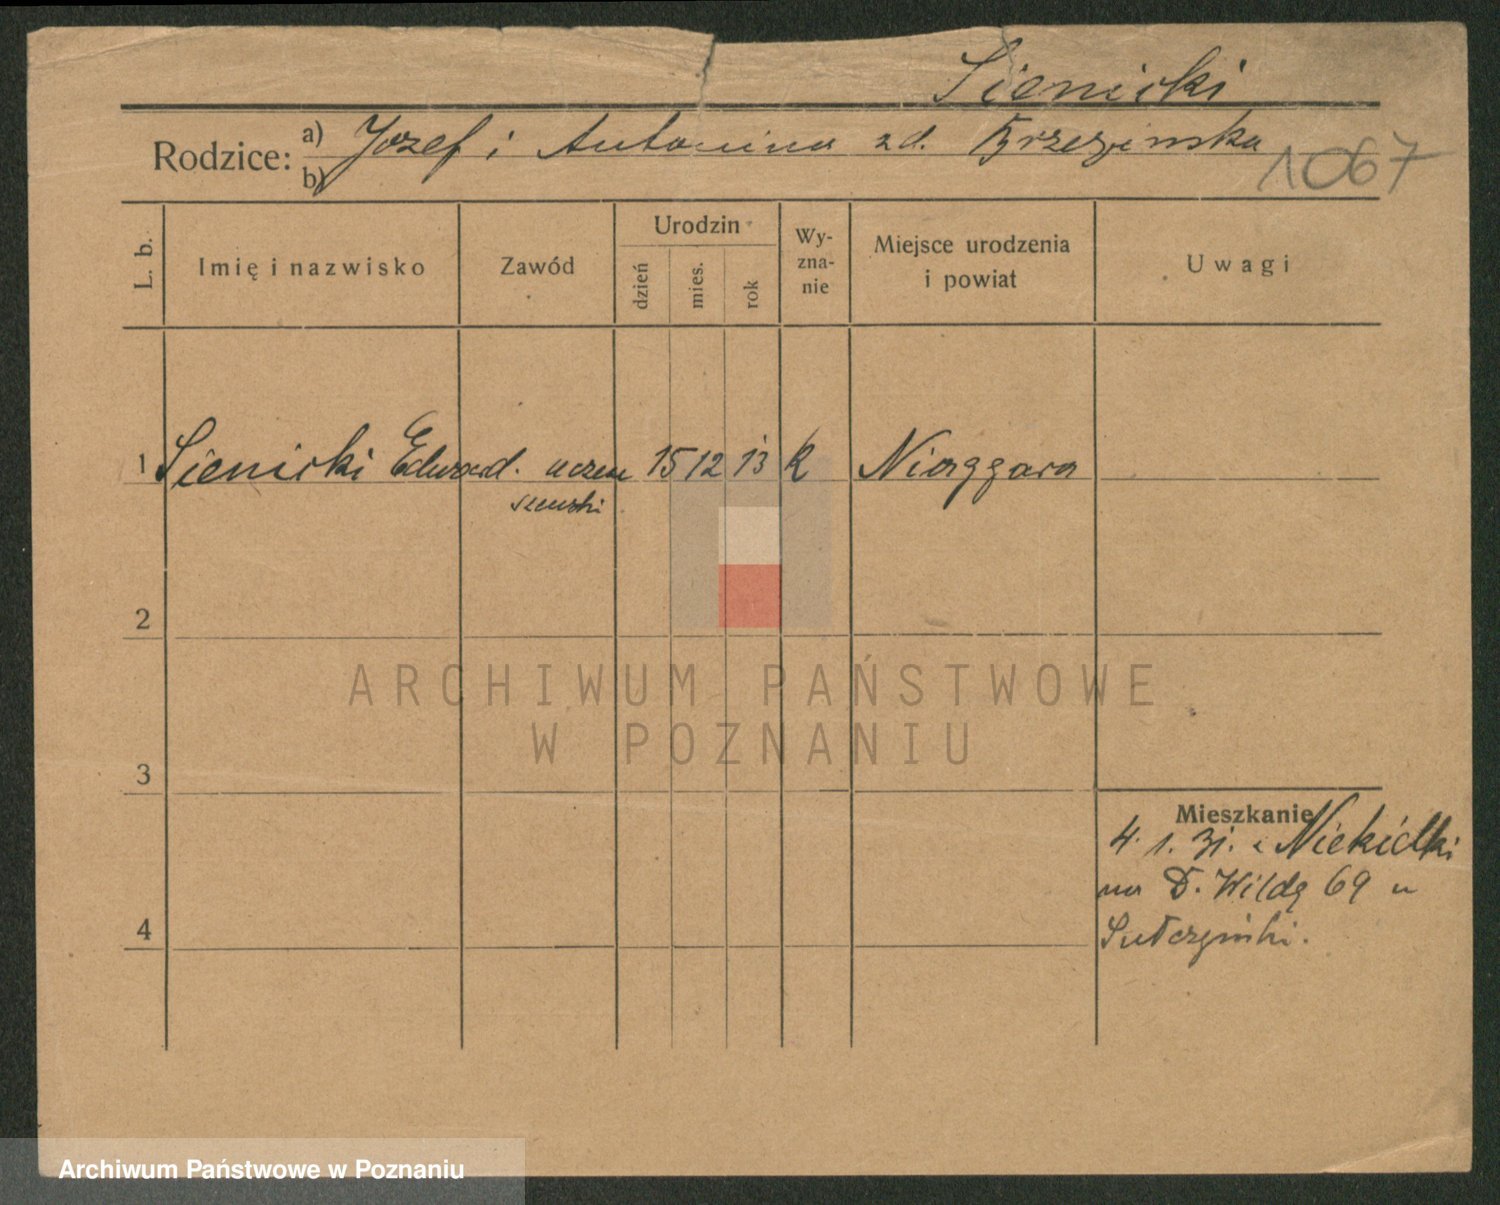 Sienicki
Rodzice: a) Jozef i Antonina zd. Brzezinska
b)
1067
L. b.
Imię i nazwisko
Zawód
Urodzin
dzień
mies.
rok
Wy-
zna-
nie
Miejsce urodzenia
i powiat
Uwagi
1 Sienicki Edward. uczeń 15 12 13 k Niaggara
szewski
2
ARCHIWUM PAŃSTWOWE
W POZNANIU
3
Mieszkanie
4. 1. 31. Niekielki
na D. Wildę 69 u
4
Archiwum Państwowe w Poznaniu